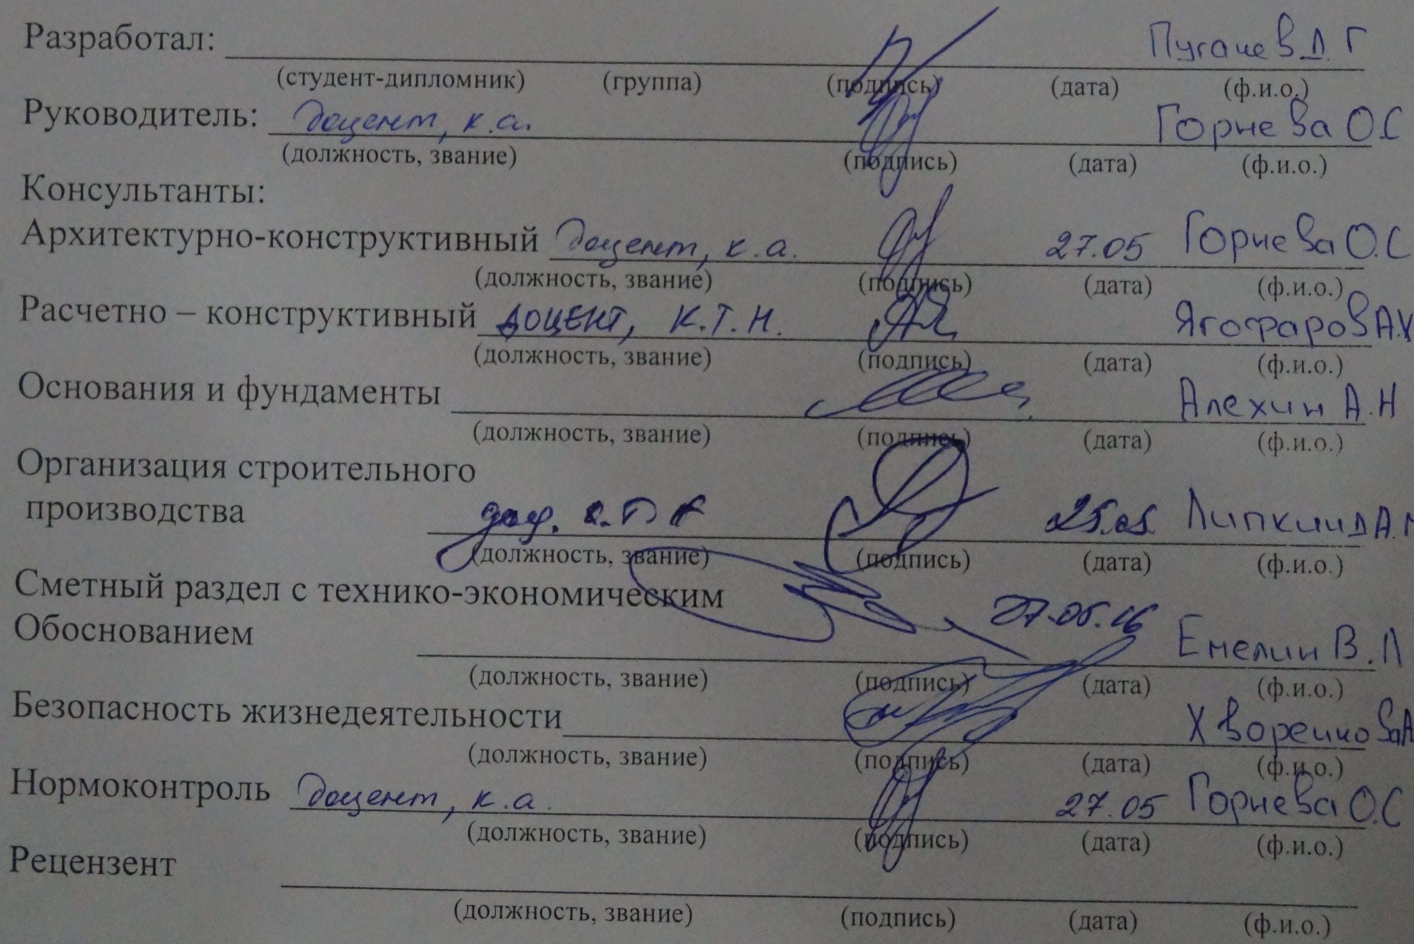 Разработал: Пугачев Д. Г
(студент-дипломник) (группа) (подпись) (дата) (ф.и.о.)
Руководитель: доцент, к.а. Горнева О.С
(должность, звание) (подпись) (дата) (ф.и.о.)
Консультанты:
Архитектурно-конструктивный доцент, к.а. 27.05 Горнева О.С
(должность, звание) (подпись) (дата) (ф.и.о.)
Расчетно – конструктивный доцент, К.Т.Н. Ягофаров А.Х
(должность, звание) (подпись) (дата) (ф.и.о.)
Основания и фундаменты Алехин А.Н
(должность, звание) (подпись) (дата) (ф.и.о.)
Организация строительного
производства 25.05
(должность, звание) (подпись) (дата) (ф.и.о.)
Сметный раздел с технико-экономическим
Обоснованием 27.05.16 Емелин В.
(должность, звание) (подпись) (дата) (ф.и.о.)
Безопасность жизнедеятельности
(должность, звание) (подпись) (дата) (ф.и.о.)
Нормоконтроль доцент, к.а. 27.05 Горнева О.С
(должность, звание) (подпись) (дата) (ф.и.о.)
Рецензент
(должность, звание) (подпись) (дата) (ф.и.о.)